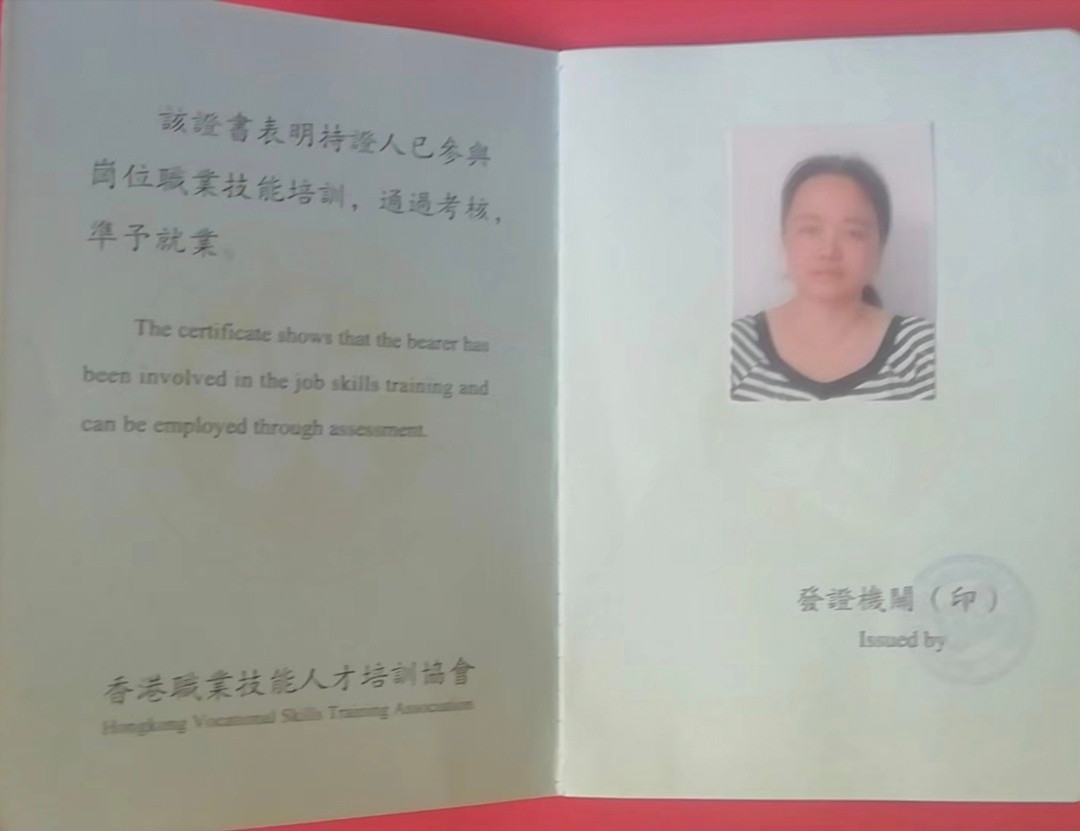 該證書表明持證人已參與
崗位職業技能培訓，通過考核，
準予就業。
The certificate shows that the bearer has
been involved in the job skills training and
can be employed through assessment.
香港職業技能人才培訓協會
Hongkong Vocational Skills Training Association
發證機關（印）
Issued by